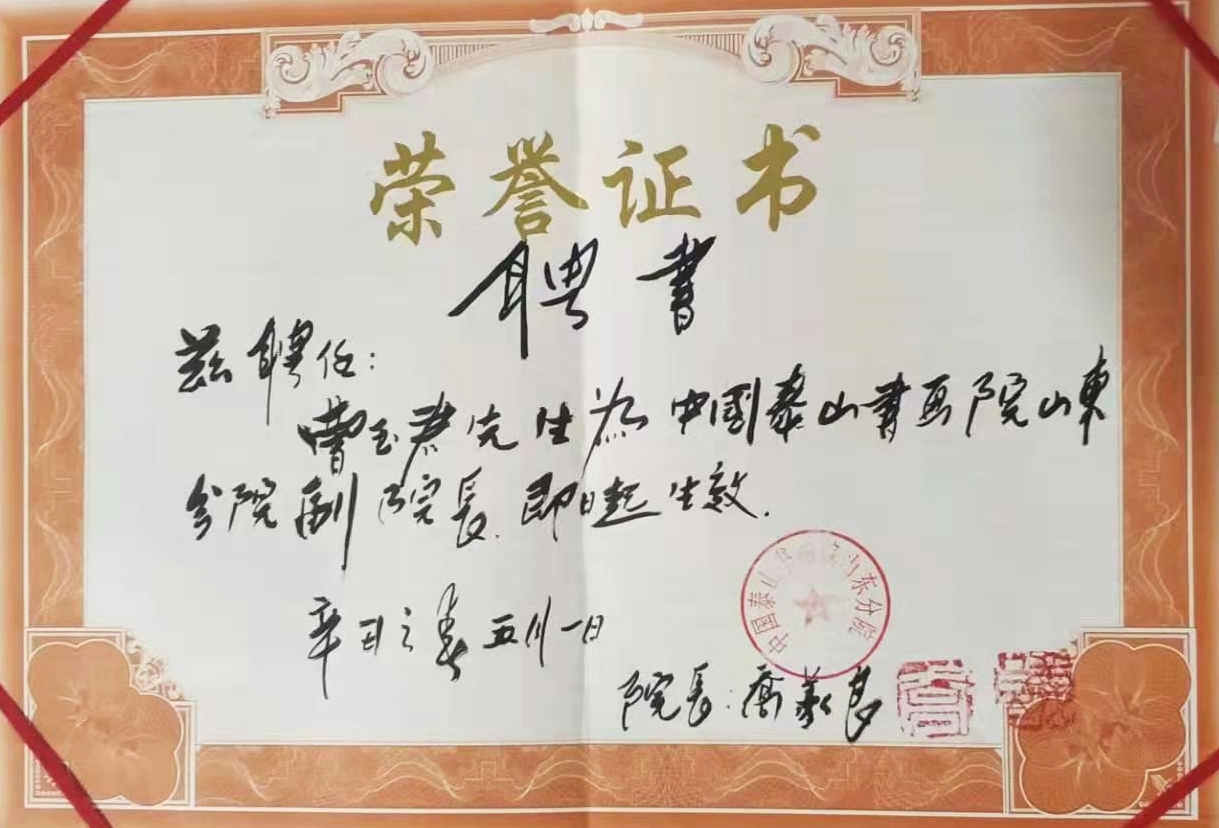 荣誉证书
聘書
兹聘任：
曹玉君先生为中國泰山書画院山東
分院副院長.即日起生效.
辛丑之春五月一日
中国泰山书画院山东分院
院長：喬義良